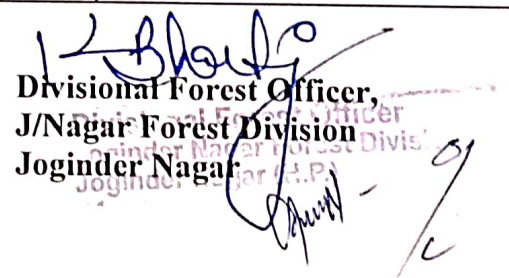 K Bharti
Divisional Forest Officer,
J/Nagar Forest Division
Joginder Nagar
Divisional Forest Officer
Joginder Nagar Forest Divis
Joginder Nagar (H.P.)